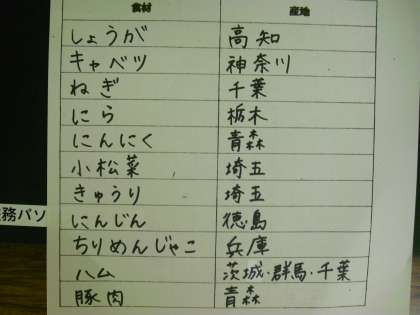 食材 産地
しょうが 高知
キャベツ 神奈川
ねぎ 千葉
にら 栃木
にんにく 青森
小松菜 埼玉
きゅうり 埼玉
にんじん 徳島
ちりめんじゃこ 兵庫
ハム 茨城・群馬・千葉
豚肉 青森
務パソ